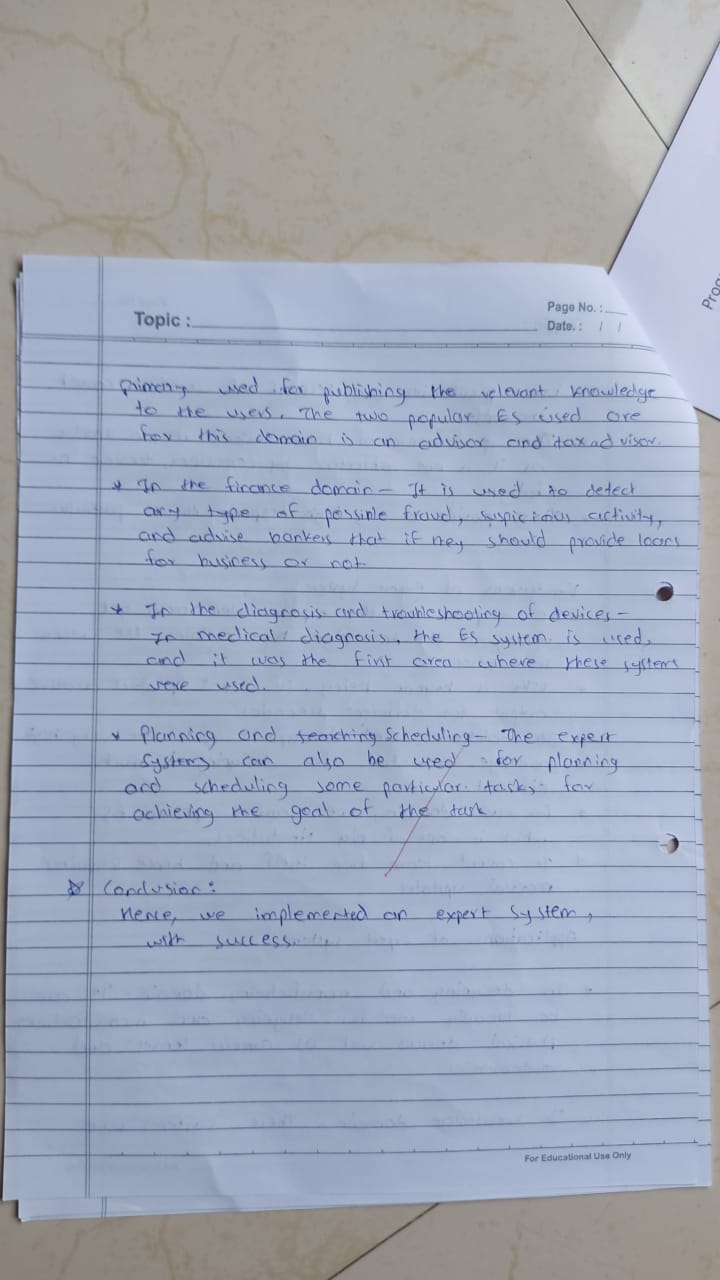 Topic :
Page No. :
Date. : / /
primary used for publishing the relevant knowledge
to the users. The two popular ES used are
for this domain is an advisor and tax advisor.
* In the finance domain - It is used to detect
any type of possible fraud, suspicious activity,
and advise bankers that if they should provide loans
for business or not
* In the diagnosis and troubleshooting of devices -
In medical diagnosis, the ES system is used,
and it was the first area where these systems
were used.
* Planning and Scheduling - The expert
systems can also be used for planning
and scheduling some particular tasks for
achieving the goal of the task
Conclusion :
Hence, we implemented an expert system,
with success.
For Educational Use Only